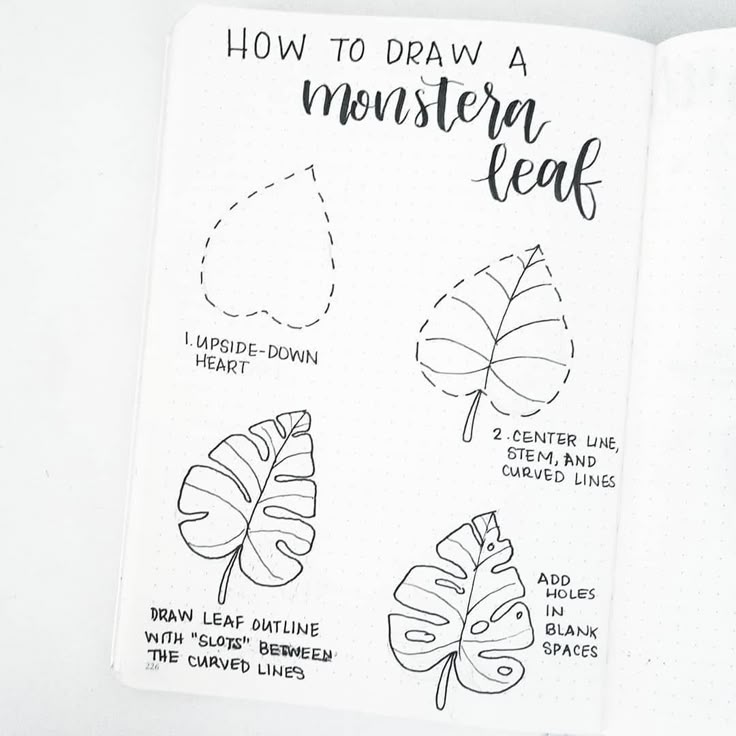 HOW TO DRAW A
monstera
leaf
1. UPSIDE-DOWN
HEART
2. CENTER LINE,
STEM, AND
CURVED LINES
DRAW LEAF OUTLINE
WITH "SLOTS" BETWEEN
THE CURVED LINES
ADD
HOLES
IN
BLANK
SPACES
226